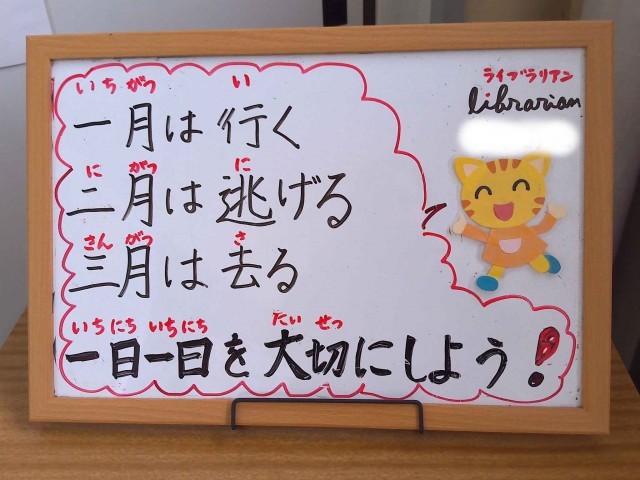 いちがつ い
一月は行く
にがつ に
二月は逃げる
さんがつ さ
三月は去る
いちにちいちにち たいせつ
一日一日を大切にしよう!
ライブラリアン
librarian